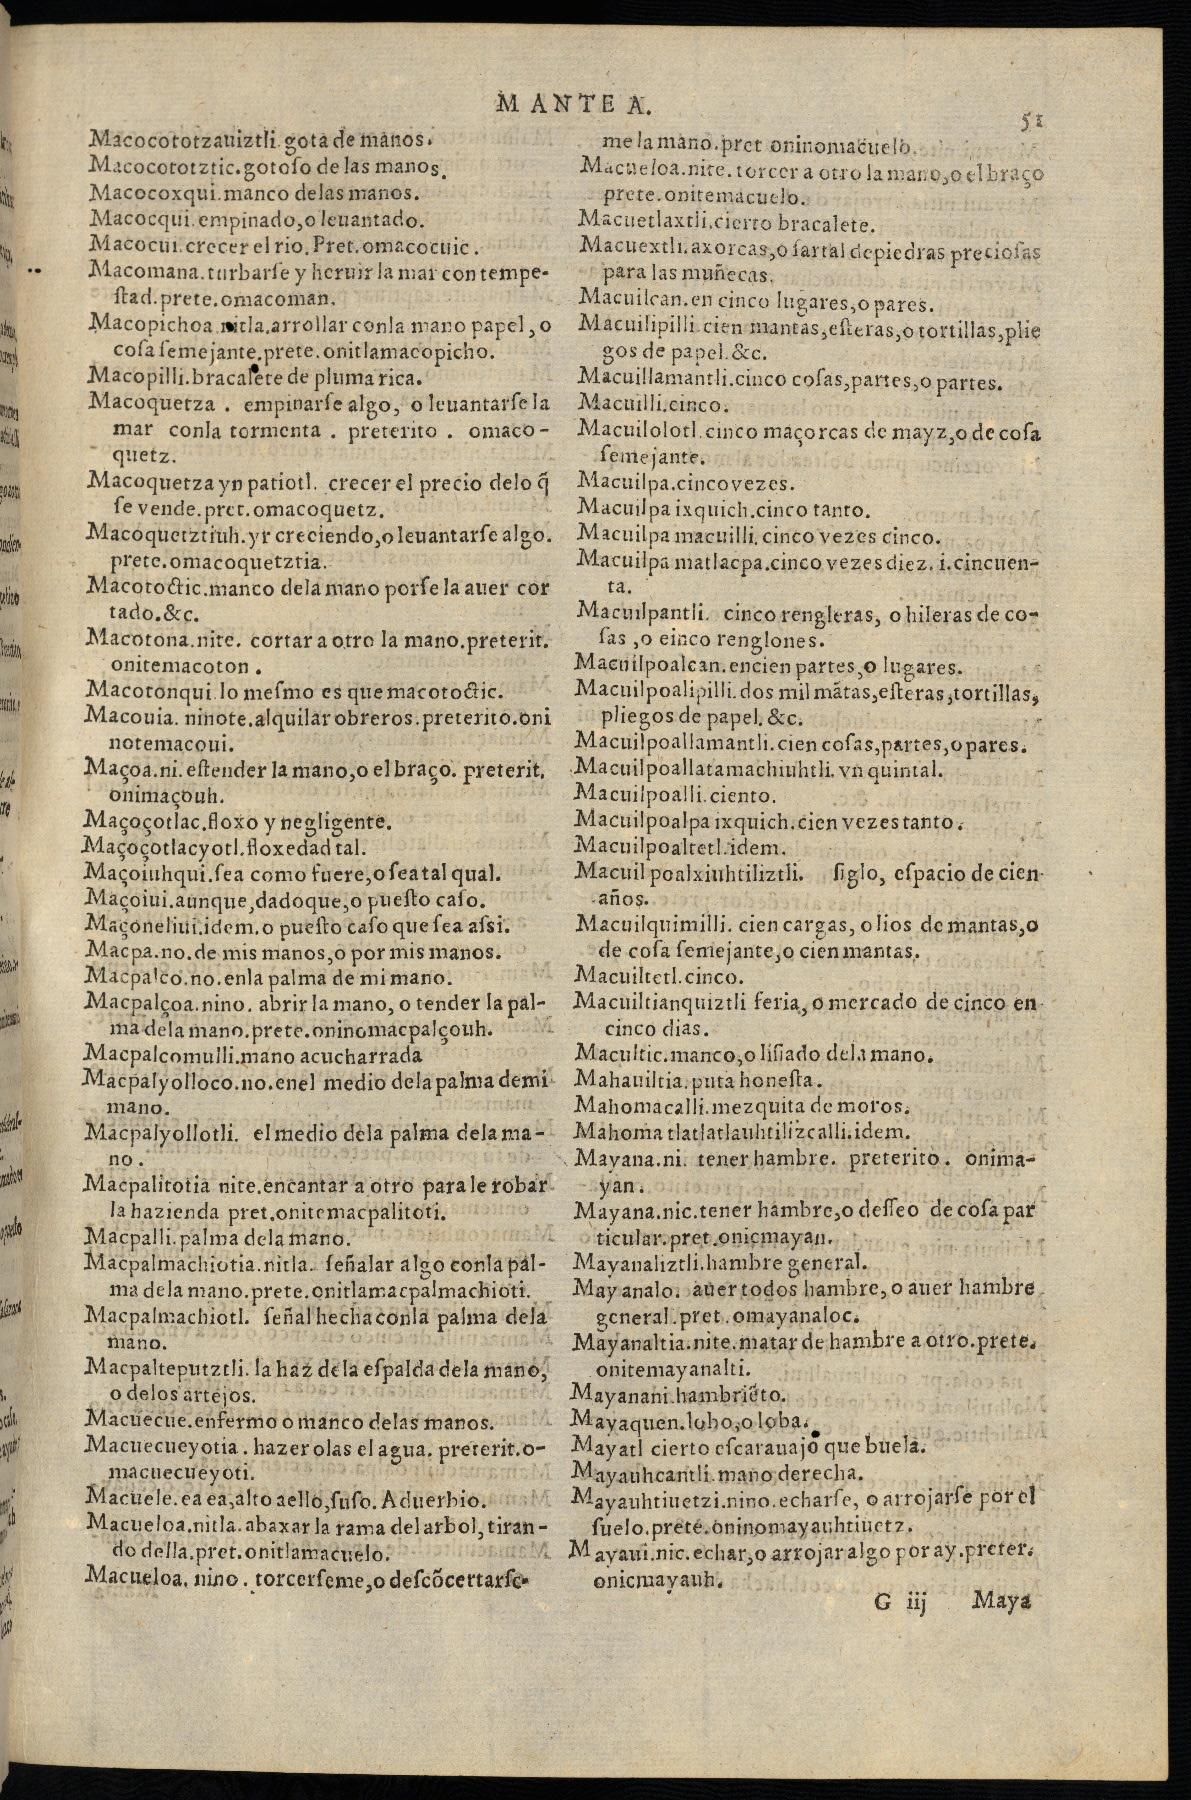 MANTE A.
51
Macocototzauiztli.gota de manos.
Macocototztic.gotoſo de las manos.
Macocoxqui.manco delas manos.
Macocqui.empinado,o leuantado.
Macocui.crecer el rio.Pret.omacocuic.
Macomana.turbarſe y heruir la mar con tempe-
ſtad.prete.omacoman.
Macopichoa.nitla.arrollar conla mano papel,o
coſa ſemejante.prete.onitlamacopicho.
Macopilli.bracalete de pluma rica.
Macoquetza . empinarſe algo, o leuantarſe la
mar conla tormenta . preterito . omaco-
quetz.
Macoquetza yn patiotl. crecer el precio delo q̃
ſe vende.pret.omacoquetz.
Macoquetztiuh.yr creciendo,o leuantarſe algo.
prete.omacoquetztia.
Macotoctic.manco dela mano porſe la auer cor
tado.&c.
Macotona.nite. cortar a otro la mano.preterit.
onitemacoton.
Macotonqui.lo meſmo es que macotoctic.
Macouia. ninote.alquilar obreros.preterito.oni
notemacoui.
Maçoa.ni.eſtender la mano,o el braço. preterit.
onimaçouh.
Maçoçotlac.floxo y negligente.
Maçoçotlacyotl.floxedad tal.
Maçoiuhqui.ſea como fuere,o ſea tal qual.
Maçoiui.aunque,dadoque,o pueſto caſo.
Maçoneliui.idem.o pueſto caſo que ſea aſſi.
Macpa.no.de mis manos,o por mis manos.
Macpalco.no.enla palma de mi mano.
Macpalçoa.nino. abrir la mano, o tender la pal-
ma dela mano.prete.oninomacpalçouh.
Macpalcomulli.mano acucharrada
Macpalyolloco.no.enel medio dela palma demi
mano.
Macpalyollotli. el medio dela palma dela ma-
no.
Macpalitotia nite.encantar a otro para le robar
la hazienda pret.onitemacpalitoti.
Macpalli.palma dela mano.
Macpalmachiotia.nitla. ſeñalar algo conla pal-
ma dela mano.prete.onitlamacpalmachioti.
Macpalmachiotl. ſeñal hecha conla palma dela
mano.
Macpalteputztli.la haz dela eſpalda dela mano,
o delos artejos.
Macuecue.enfermo o manco delas manos.
Macuecueyotia.hazer olas el agua. preterit.o-
macuecueyoti.
Macuele.ea ea,alto aello,ſuſo.Aduerbio.
Macueloa.nitla.abaxar la rama del arbol,tiran-
do della.pret.onitlamacuelo.
Macueloa. nino. torcerſeme,o deſcõcertarſe-
me la mano.pret oninomacuelo.
Macueloa.nite.torcer a otro la mano,o el braço
prete.onitemacuelo.
Macuetlaxtli.cierto bracalete.
Macuextli.axorcas,o ſartal de piedras precioſas
para las muñecas.
Macuilcan.en cinco lugares,o pares.
Macuilipilli.cien mantas,eſteras,o tortillas,plie
gos de papel.&c.
Macuillamantli.cinco coſas,partes,o partes.
Macuilli.cinco.
Macuilolotl.cinco maçorcas de mayz,o de coſa
ſemejante.
Macuilpa.cinco vezes.
Macuilpa ixquich.cinco tanto.
Macuilpa macuilli.cinco vezes cinco.
Macuilpa matlacpa.cinco vezes diez. i.cincuen-
ta.
Macuilpantli. cinco rengleras, o hileras de co-
ſas ,o einco renglones.
Macuilpoalcan.encien partes,o lugares.
Macuilpoalipilli.dos mil mãtas,eſteras,tortillas,
pliegos de papel.&c.
Macuilpoallamantli.cien coſas,partes,o pares.
Macuilpoallatamachiuhtli.vn quintal.
Macuilpoalli.ciento.
Macuilpoalpa ixquich.cien vezes tanto.
Macuilpoaltetl.idem.
Macuil poalxiuhtiliztli. ſiglo, eſpacio de cien
años.
Macuilquimilli. cien cargas, o lios de mantas,o
de coſa ſemejante,o cien mantas.
Macuiltetl.cinco.
Macuiltianquiztli feria, o mercado de cinco en
cinco dias.
Macultic.manco,o liſiado dela mano.
Mahauiltia.puta honeſta.
Mahomacalli.mezquita de moros.
Mahoma tlatlatlauhtilizcalli.idem.
Mayana.ni. tener hambre. preterito. onima-
yan.
Mayana.nic.tener hambre,o deſſeo de coſa par
ticular.pret.onicmayan.
Mayanaliztli.hambre general.
Mayanalo. auer todos hambre, o auer hambre
general.pret.omayanaloc.
Mayanaltia.nite.matar de hambre a otro.prete.
onitemayanalti.
Mayanani.hambriẽto.
Mayaquen.lobo,o loba.
Mayatl cierto eſcarauajo que buela.
Mayauhcantli.mano derecha.
Mayauhtiuetzi.nino.echarſe, o arrojarſe por el
ſuelo.prete.oninomayauhtiuetz.
Mayaui.nic.echar,o arrojar algo por ay.preter.
onicmayauh.
G iij Maya